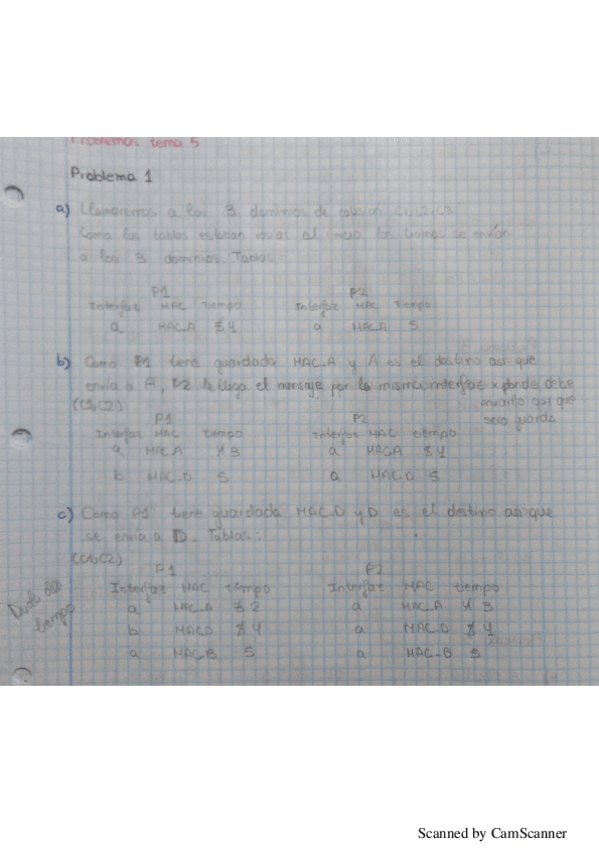 Problemas tema 5
Problema 1
a) Llamaremos a los 3 dominios de colisión C1, C2, C3
Como las tablas estaban vacías al inicio las tramas se envían
a los 3 dominios. Tablas:
P1 P2
Interfaz MAC Tiempo Interfaz MAC Tiempo
a MAC_A 4 a MAC_A 5
b) Como P1 tiene guardada MAC_A y A es el destino así que
envía a A, P2 le llega el mensaje por la misma interfaz x donde debe
(C1,C2) enviarlo así que
solo guarda
P1 P2
Interfaz MAC tiempo Interfaz MAC tiempo
a MAC_A 3 a MAC_A 4
b MAC_D 5 a MAC_D 5
c) Como P1 tiene guardada MAC_D y D es el destino así que
se envía a D. Tablas:
(C1,C2)
P1 P2
Interfaz MAC tiempo Interfaz MAC tiempo
a MAC_A 2 a MAC_A 3
b MAC_D 4 a MAC_D 4
a MAC_B 5 a MAC_B 5
Duda
tiempo
Scanned by CamScanner